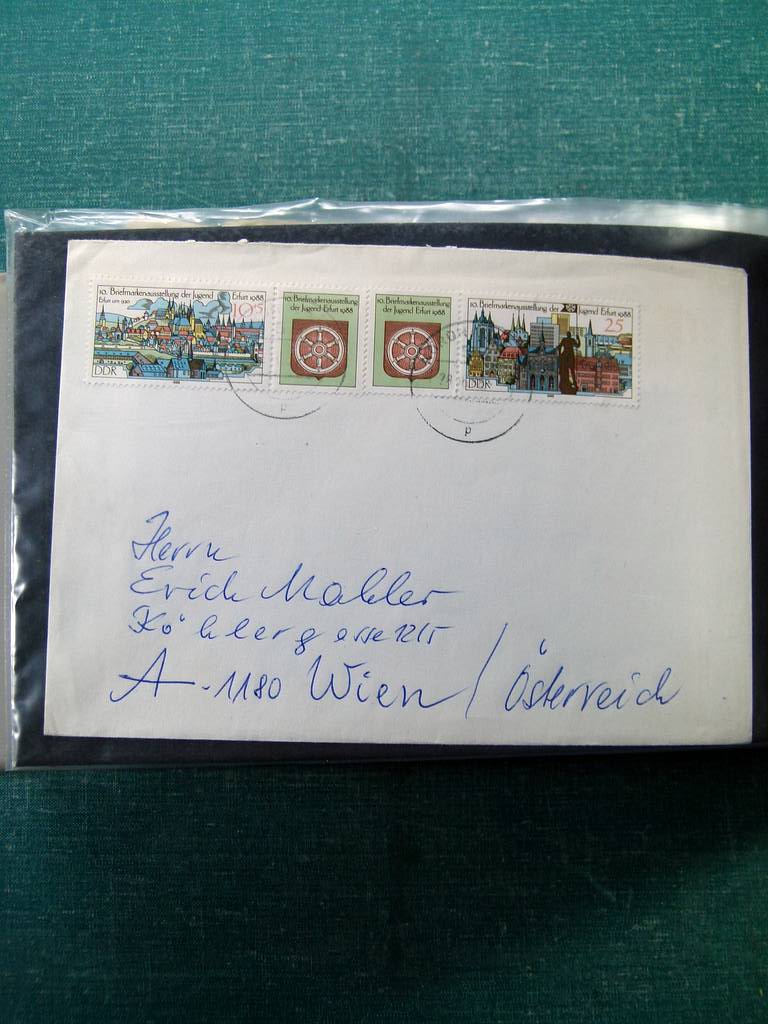 10. Briefmarkenausstellung der Jugend Erfurt 1988
Erfurt um 1520
10+5
DDR
10. Briefmarkenausstellung
der Jugend Erfurt 1988
10. Briefmarkenausstellung
der Jugend Erfurt 1988
10. Briefmarkenausstellung der Jugend Erfurt 1988
25
DDR
p
p
Herrn
Erich Mahler
Köhlergasse 12/5
A-1180 Wien / Österreich